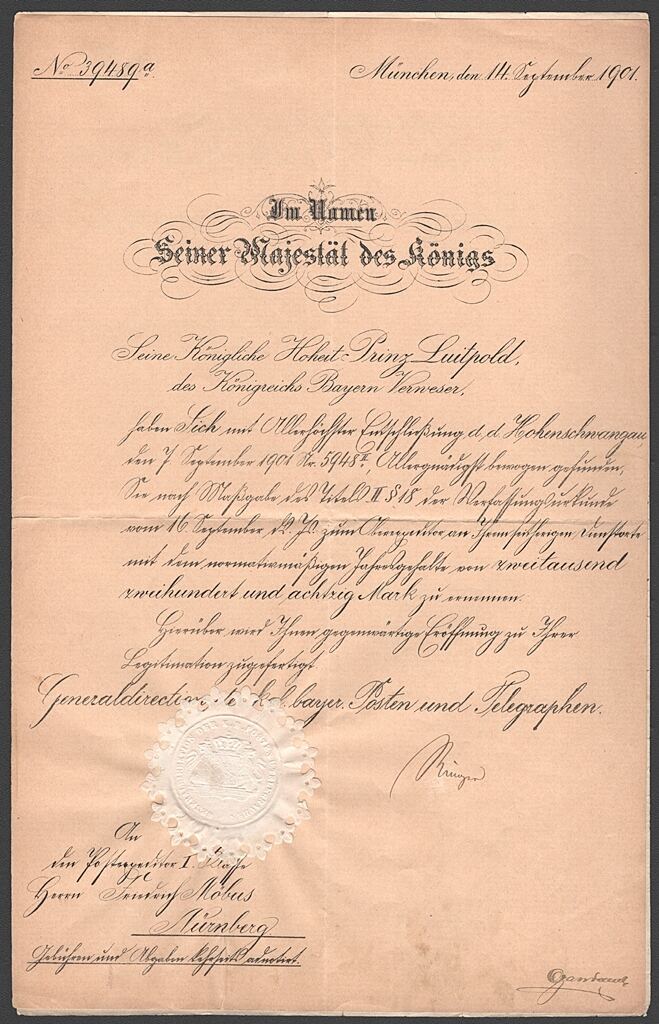 No 39489a.
München, den 14. September 1901.
Im Namen
Seiner Majestät des Königs
Seine Königliche Hoheit Prinz Luitpold,
des Königreichs Bayern Verweser,
haben Sich mit Allerhöchster Entschließung d. d. Hohenschwangau,
den 7. September 1901 Nr. 5948 II, Allergnädigst bewogen gefunden,
Sie nach Maßgabe des Titels II § 18 der Verfassungsurkunde
vom 16. September ds. Js. zum Oberexpeditor an Ihrem seitherigen Dienstorte
mit dem normativmäßigen Jahresgehalte von zweitausend
zweihundert und achtzig Mark zu ernennen.
Hierüber wird Ihnen gegenwärtige Eröffnung zu Ihrer
Legitimation zugefertigt.
Generaldirection der kgl. bayer. Posten und Telegraphen.
An
den Postexpeditor I. Klasse
Herrn Friedrich Möbus
Nürnberg
Gebühren und Abgaben kehrseits adnotirt.